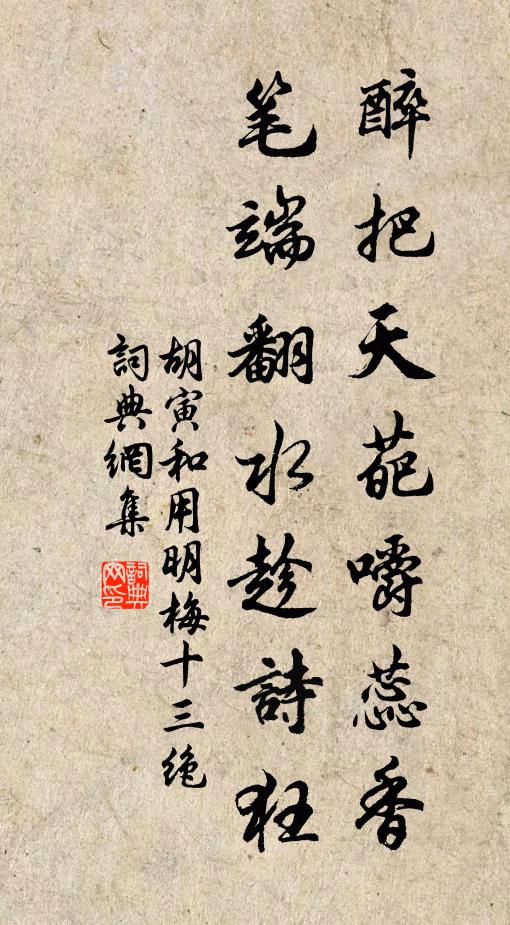 醉把天葩嚼蕊香
笔端翻水趁詩狂
胡寅和用明梅十三绝
詞典網集
詞典网印